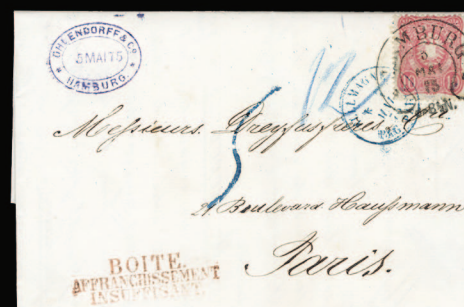 OHLENDORFF & Co
5 MAI 75
HAMBURG.
HAMBURG
5
MAI
75
Messieurs Dreyfus frères
21 Boulevard Haussmann
Paris.
BOITE.
AFFRANCHISSEMENT
INSUFFISANT.